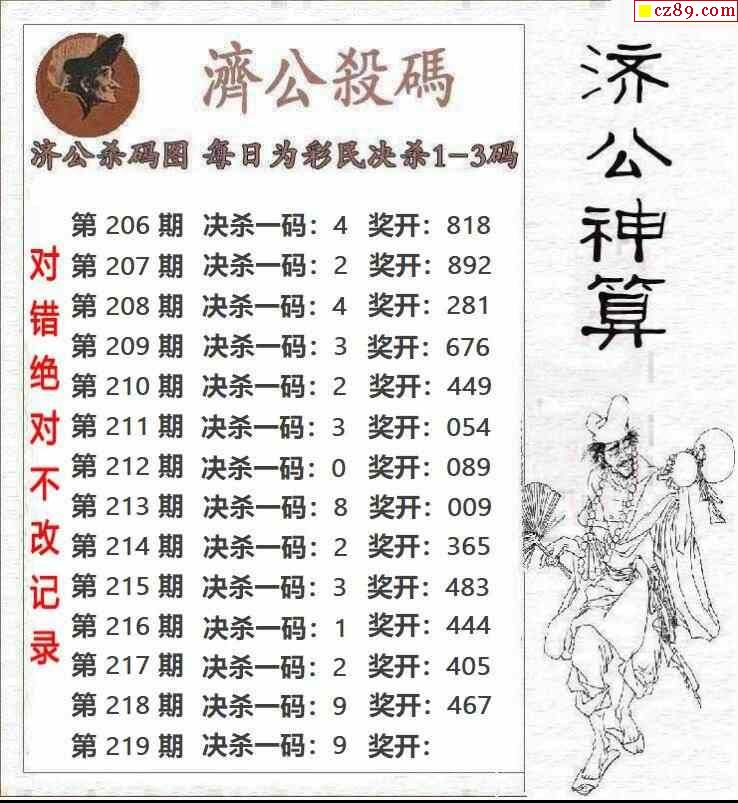 cz89.com
濟公殺碼
济公杀码图 每日为彩民决杀1-3码
第 206 期 决杀一码：4 奖开：818
第 207 期 决杀一码：2 奖开：892
第 208 期 决杀一码：4 奖开：281
第 209 期 决杀一码：3 奖开：676
第 210 期 决杀一码：2 奖开：449
第 211 期 决杀一码：3 奖开：054
第 212 期 决杀一码：0 奖开：089
第 213 期 决杀一码：8 奖开：009
第 214 期 决杀一码：2 奖开：365
第 215 期 决杀一码：3 奖开：483
第 216 期 决杀一码：1 奖开：444
第 217 期 决杀一码：2 奖开：405
第 218 期 决杀一码：9 奖开：467
第 219 期 决杀一码：9 奖开：
对错绝对不改记录
济公神算